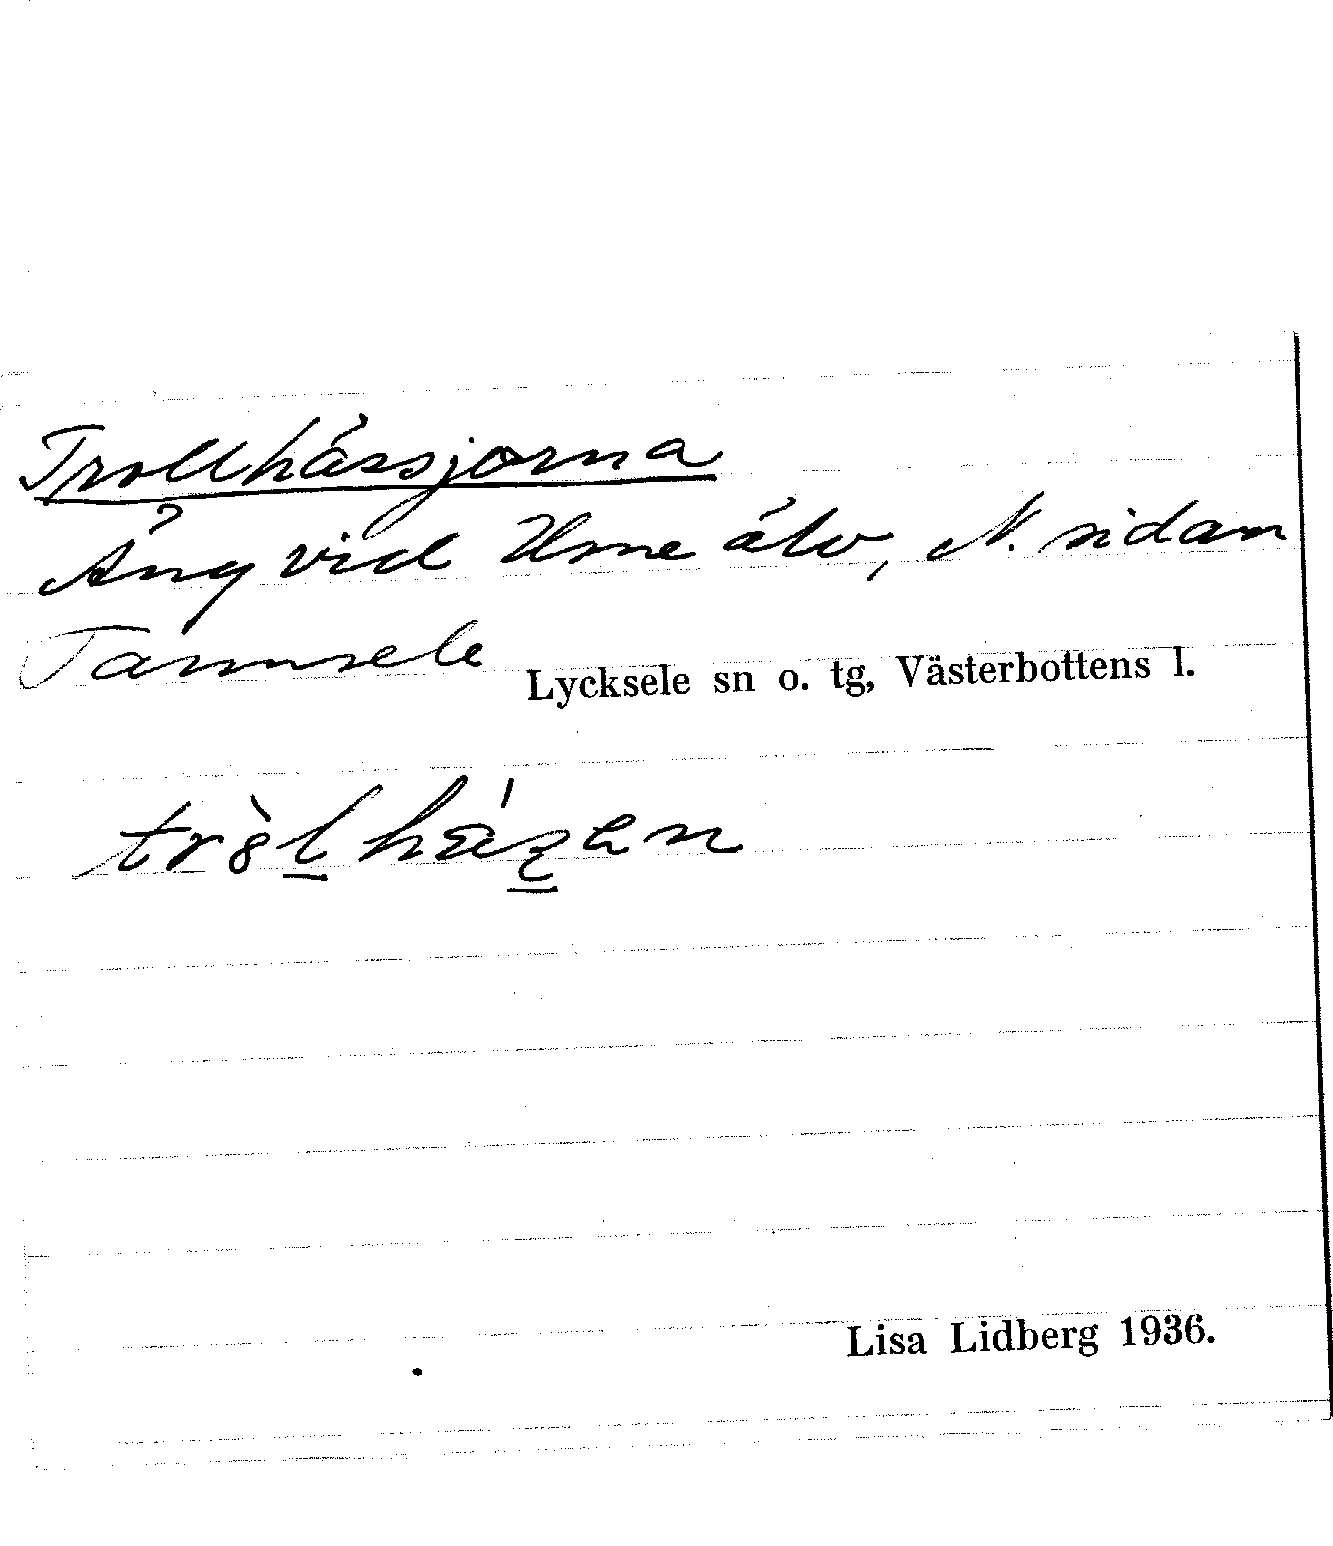 Trollhässjorna
Äng vid Ume älv, N. sidan
Tannsele Lycksele sn o. tg, Västerbottens l.
Lisa Lidberg 1936.